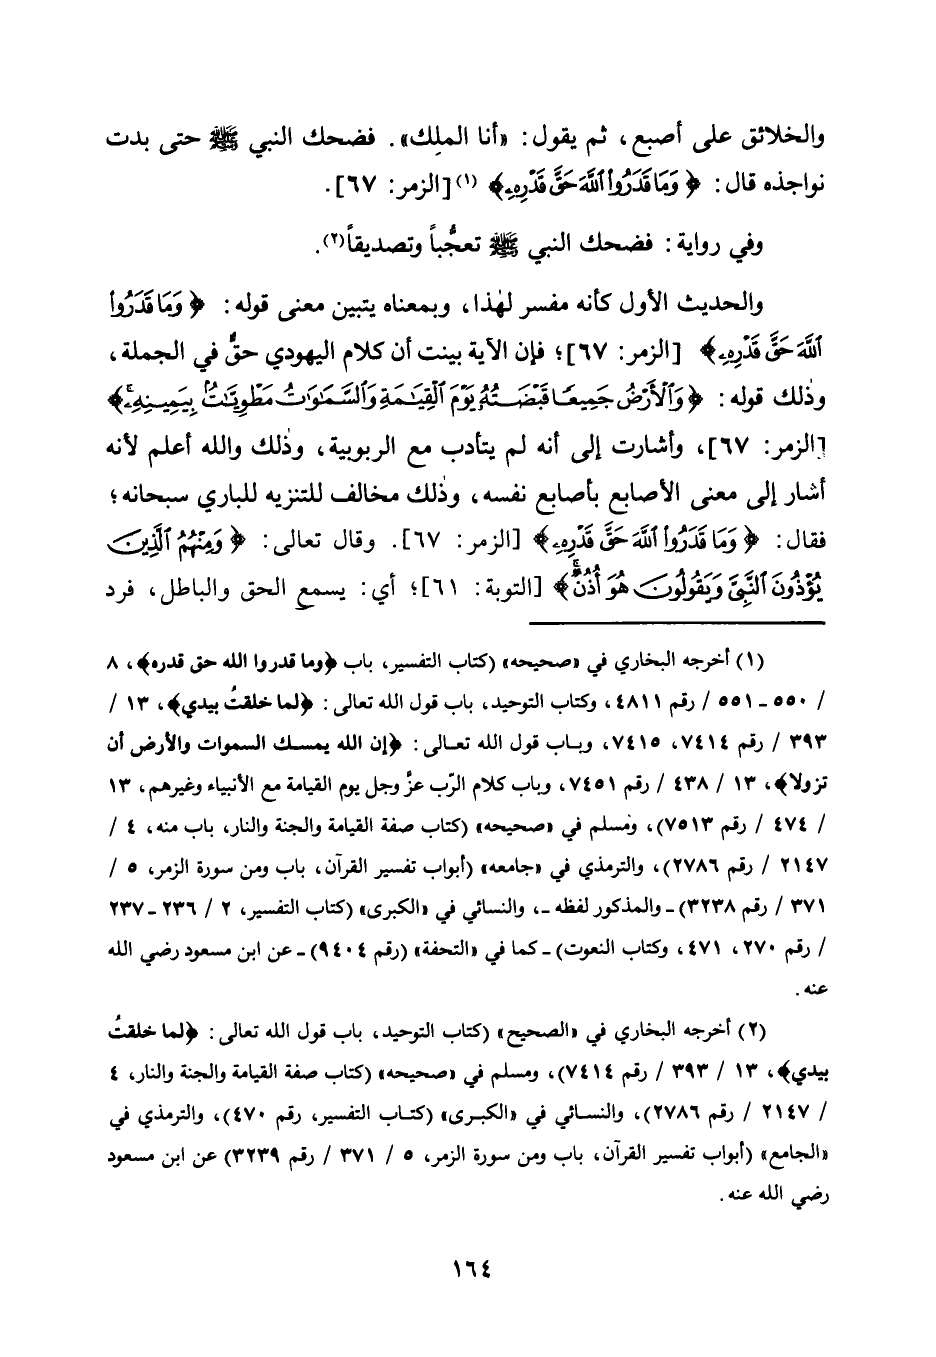 والخلائق على أصبع، ثم يقول: «أنا الملِك». فضحك النبي ﷺ حتى بدت
نواجذه قال: ﴿وَمَا قَدَرُوا۟ ٱللَّهَ حَقَّ قَدْرِهِۦ﴾ (١) [الزمر: ٦٧].
وفي رواية: فضحك النبي ﷺ تعجُّباً وتصديقاً(٢).
والحديث الأول كأنه مفسر لهٰذا، وبمعناه يتبين معنى قوله: ﴿وَمَا قَدَرُوا۟
ٱللَّهَ حَقَّ قَدْرِهِۦ﴾ [الزمر: ٦٧]؛ فإن الآية بينت أن كلام اليهودي حقٌّ في الجملة،
وذٰلك قوله: ﴿وَٱلْأَرْضُ جَمِيعًا قَبْضَتُهُۥ يَوْمَ ٱلْقِيَٰمَةِ وَٱلسَّمَٰوَٰتُ مَطْوِيَّٰتٌۢ بِيَمِينِهِۦۚ﴾
[الزمر: ٦٧]، وأشارت إلى أنه لم يتأدب مع الربوبية، وذٰلك والله أعلم لأنه
أشار إلى معنى الأصابع بأصابع نفسه، وذٰلك مخالف للتنزيه للباري سبحانه؛
فقال: ﴿وَمَا قَدَرُوا۟ ٱللَّهَ حَقَّ قَدْرِهِۦ﴾ [الزمر: ٦٧]. وقال تعالى: ﴿وَمِنْهُمُ ٱلَّذِينَ
يُؤْذُونَ ٱلنَّبِىَّ وَيَقُولُونَ هُوَ أُذُنٌۚ﴾ [التوبة: ٦١]؛ أي: يسمع الحق والباطل، فرد
(١) أخرجه البخاري في «صحيحه» (كتاب التفسير، باب ﴿وما قدروا الله حق قدره﴾، ٨
/ ٥٥٠ ـ ٥٥١ / رقم ٤٨١١، وكتاب التوحيد، باب قول الله تعالى: ﴿لما خلقتُ بيدي﴾، ١٣ /
٣٩٣ / رقم ٧٤١٤، ٧٤١٥، وباب قول الله تعالى: ﴿إن الله يمسك السموات والأرض أن
تزولا﴾، ١٣ / ٤٣٨ / رقم ٧٤٥١، وباب كلام الرّب عزَّ وجل يوم القيامة مع الأنبياء وغيرهم، ١٣
/ ٤٧٤ / رقم ٧٥١٣)، ومسلم في «صحيحه» (كتاب صفة القيامة والجنة والنار، باب منه، ٤ /
٢١٤٧ / رقم ٢٧٨٦)، والترمذي في «جامعه» (أبواب تفسير القرآن، باب ومن سورة الزمر، ٥ /
٣٧١ / رقم ٣٢٣٨) ـ والمذكور لفظه ـ، والنسائي في «الكبرى» (كتاب التفسير، ٢ / ٢٣٦ ـ ٢٣٧
/ رقم ٢٧٠، ٤٧١، وكتاب النعوت) ـ كما في «التحفة» (رقم ٩٤٠٤) ـ عن ابن مسعود رضي الله
عنه.
(٢) أخرجه البخاري في «الصحيح» (كتاب التوحيد، باب قول الله تعالى: ﴿لما خلقتُ
بيدي﴾، ١٣ / ٣٩٣ / رقم ٧٤١٤)، ومسلم في «صحيحه» (كتاب صفة القيامة والجنة والنار، ٤
/ ٢١٤٧ / رقم ٢٧٨٦)، والنسائي في «الكبرى» (كتاب التفسير، رقم ٤٧٠)، والترمذي في
«الجامع» (أبواب تفسير القرآن، باب ومن سورة الزمر، ٥ / ٣٧١ / رقم ٣٢٣٩) عن ابن مسعود
رضي الله عنه.
١٦٤